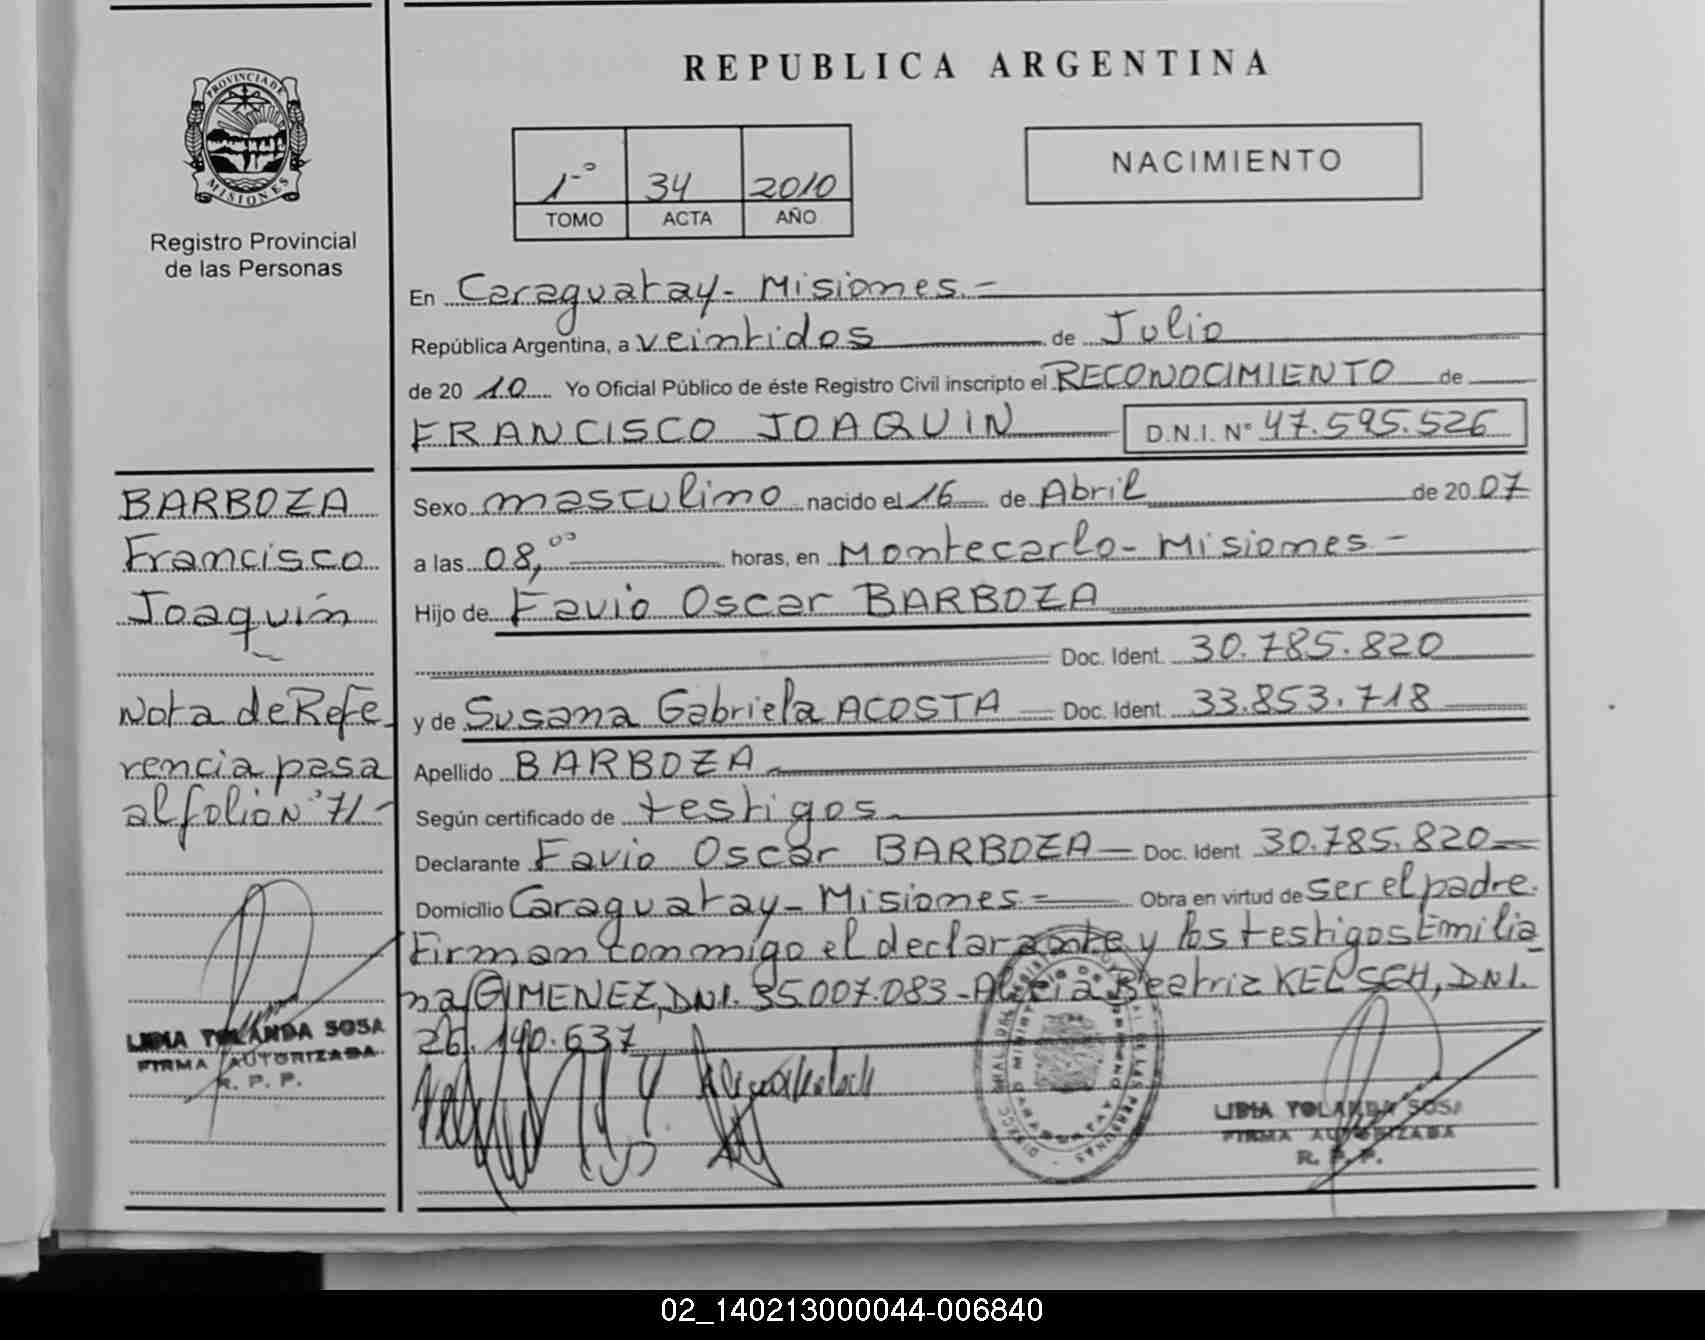 REPUBLICA ARGENTINA
PROVINCIA DE
MISIONES
Registro Provincial
de las Personas
1-º 34 2010
TOMO ACTA AÑO
NACIMIENTO
En Caraguatay- Misiones.-
República Argentina, a veintidos de Julio
de 20 10 Yo Oficial Público de éste Registro Civil inscripto el RECONOCIMIENTO de
FRANCISCO JOAQUIN D.N.I. Nº 47.595.526
BARBOZA
Francisco
Joaquín
Nota de Refe-
rencia pasa
al folio Nº 71-
LIDIA YOLANDA SOSA
FIRMA AUTORIZADA
R. P. P.
Sexo masculino nacido el 16 de Abril de 20 07
a las 08,00 horas, en Montecarlo- Misiones-
Hijo de Favio Oscar BARBOZA
Doc. Ident. 30.785.820
y de Susana Gabriela ACOSTA Doc. Ident. 33.853.718
Apellido BARBOZA
Según certificado de testigos.
Declarante Favio Oscar BARBOZA - Doc. Ident 30.785.820
Domicilio Caraguatay- Misiones- Obra en virtud de ser el padre.
Firman conmigo el declarante y los testigos Emilia
na GIMENEZ, DNI. 35.007.083- Alicia Beatriz KELSCH, DNI.
26.190.637
LIDIA YOLANDA SOSA
FIRMA AUTORIZADA
R. P. P.
02_140213000044-006840